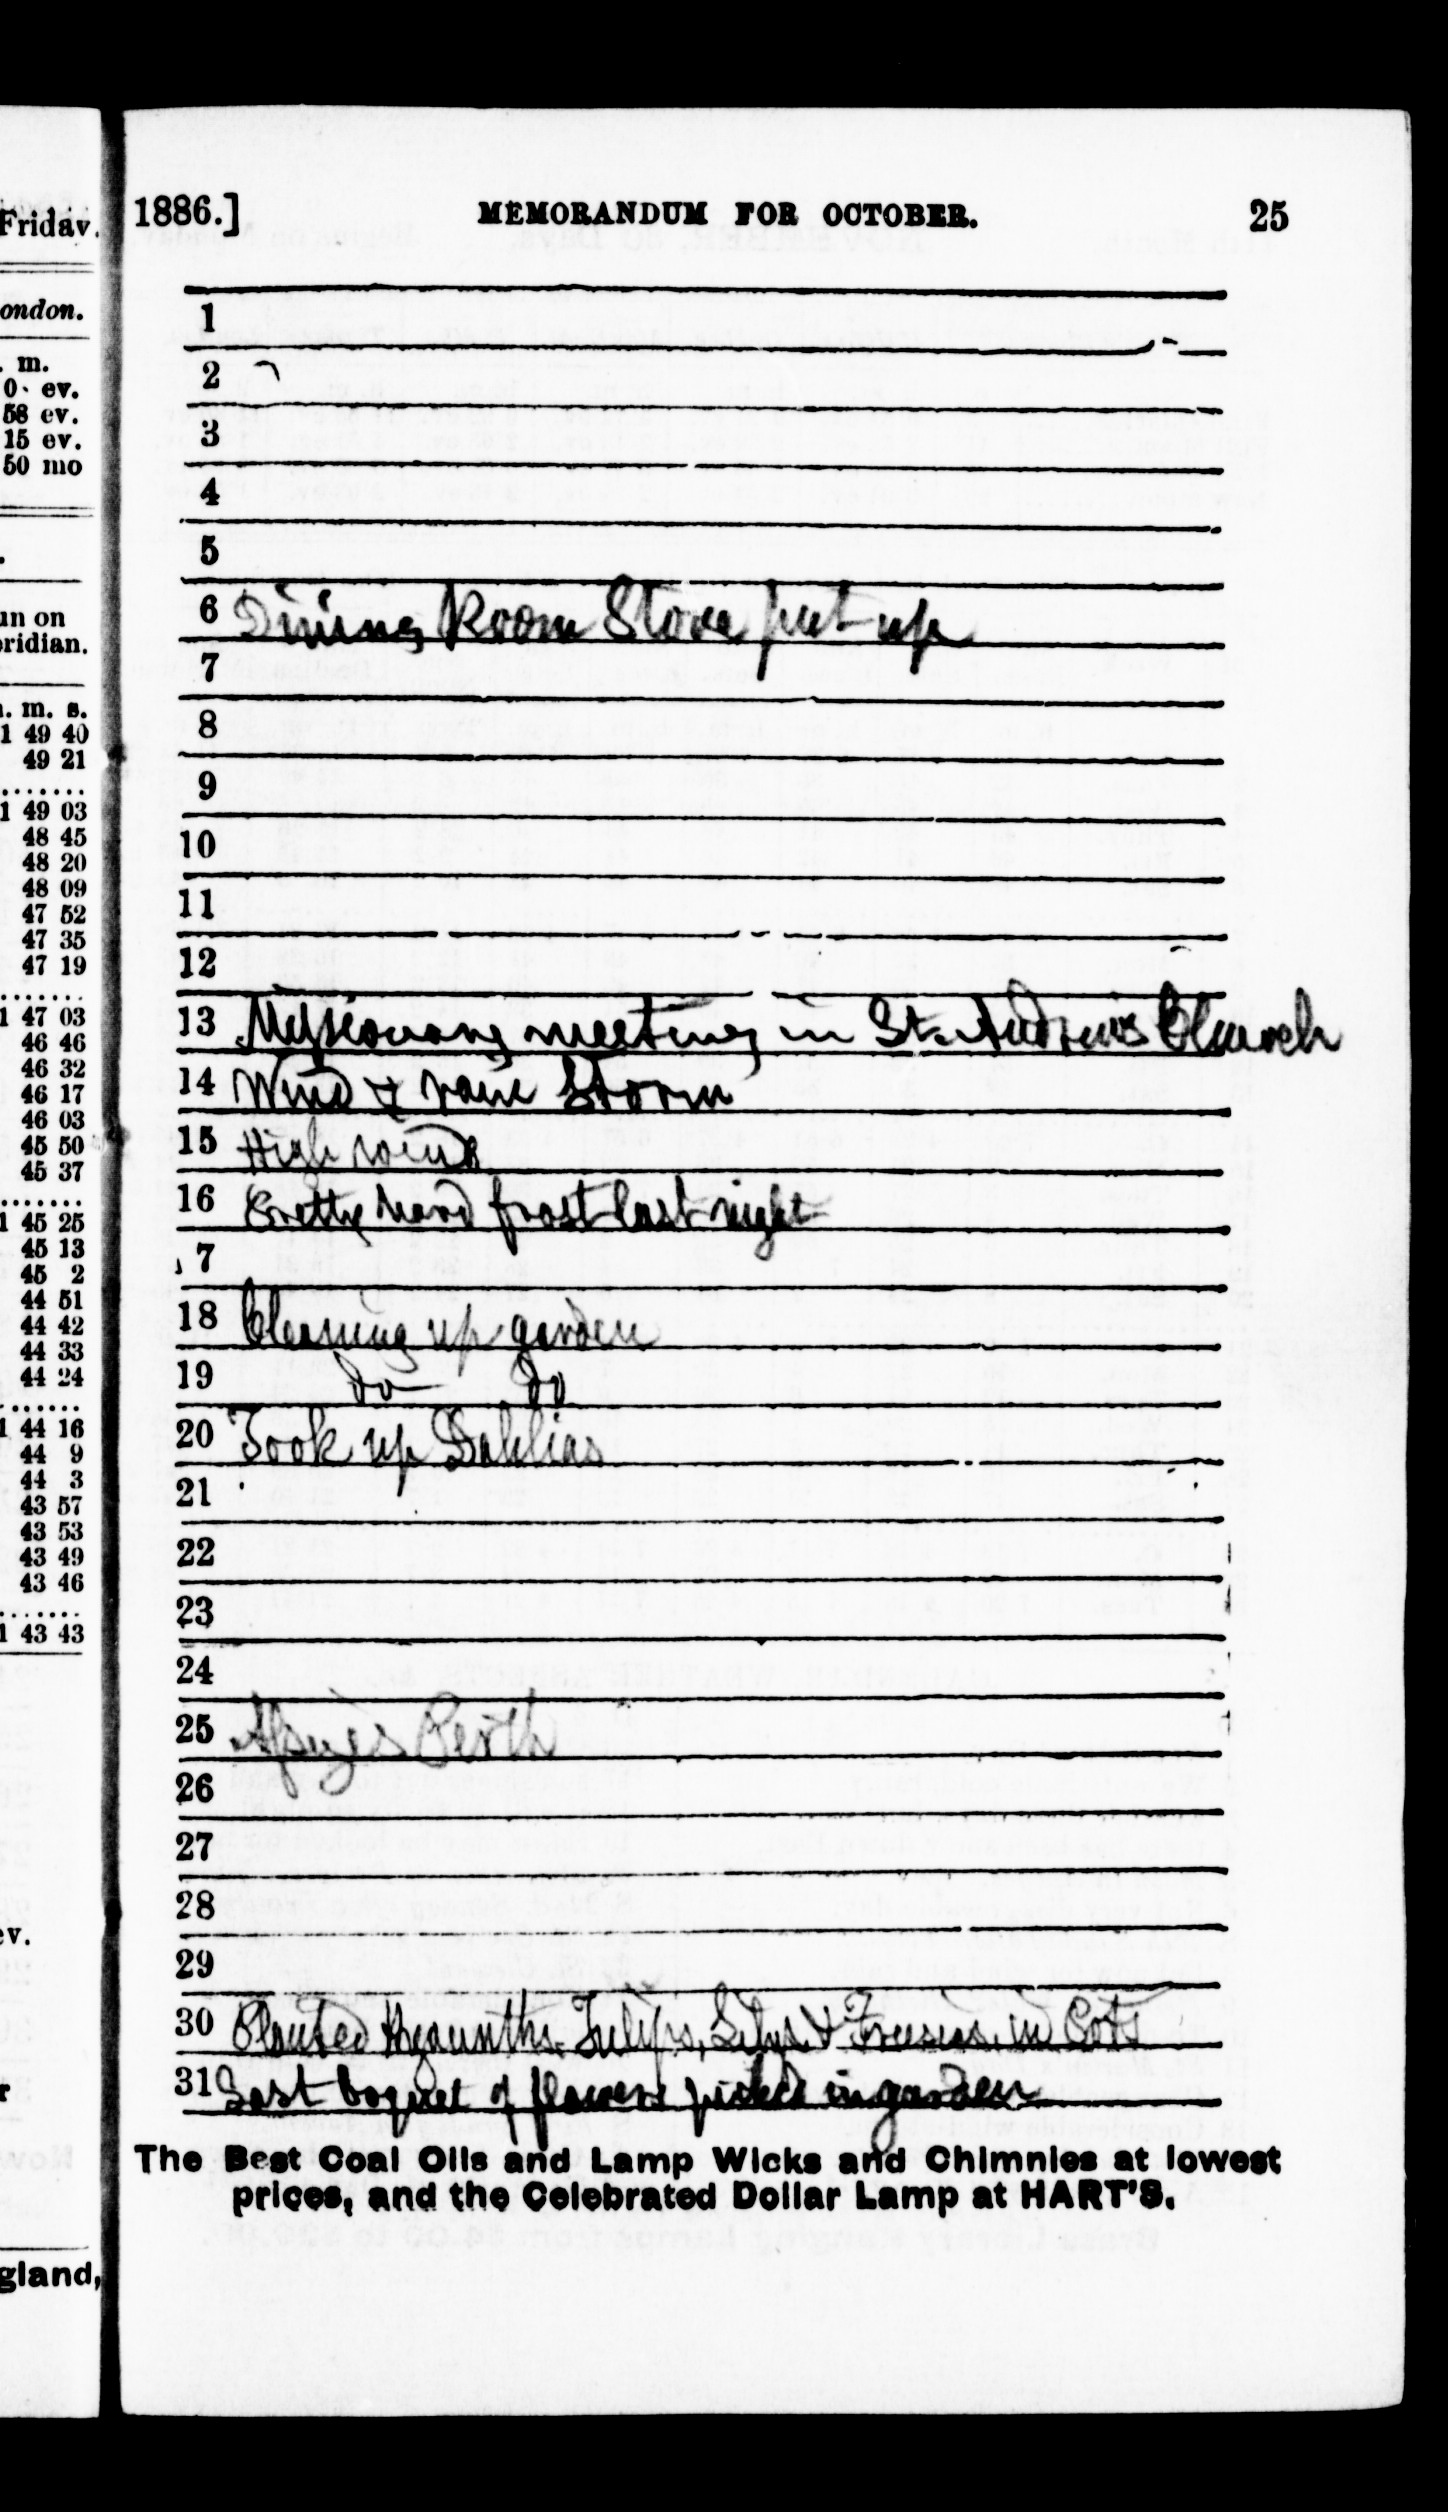 Friday.
ondon.
. m.
0· ev.
58 ev.
15 ev.
50 mo
un on
eridian.
. m. s.
1 49 40
49 21
1 49 03
48 45
48 20
48 09
47 52
47 35
47 19
1 47 03
46 46
46 32
46 17
46 03
45 50
45 37
1 45 25
45 13
45 2
44 51
44 42
44 33
44 24
1 44 16
44 9
44 3
43 57
43 53
43 49
43 46
1 43 43
ev.
r
gland,
1886.] MEMORANDUM FOR OCTOBER. 25
1
2
3
4
5
6 Dining Room Stove put up
7
8
9
10
11
12
13 Missionary meeting in St. Andrew's Church
14 Wind & rain Storm
15 High wind
16 Pretty hard frost last night
7
18 Cleaning up garden
19 do do
20 Took up Dahlias
21
22
23
24
25 Perth
26
27
28
29
30 Planted Hyacinths, Tulips, Lilys & Freesias in Pots
31 Last boquet of flowers picked in garden
The Best Coal Oils and Lamp Wicks and Chimnies at lowest
prices, and the Celebrated Dollar Lamp at HART'S.